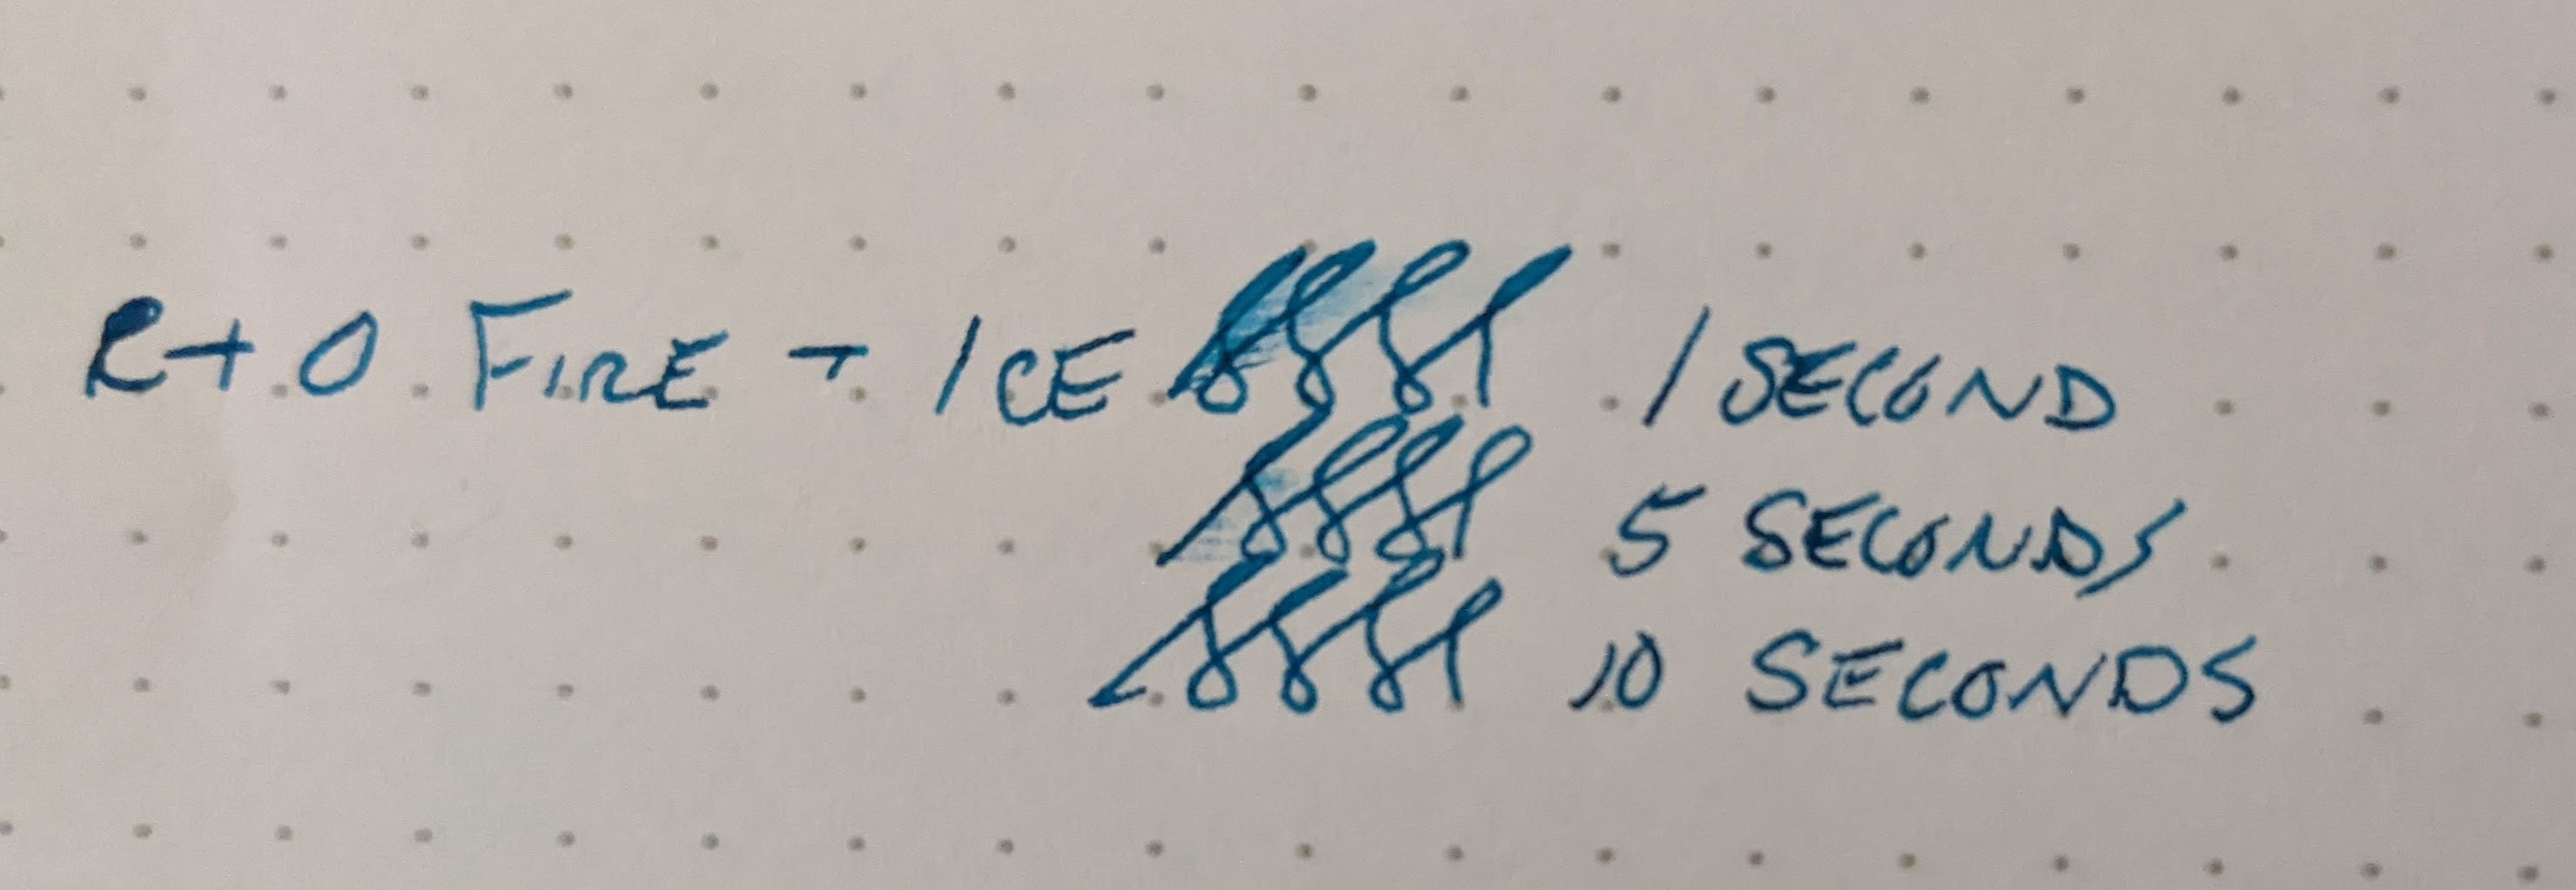 R+O FIRE + ICE 1 SECOND
5 SECONDS
10 SECONDS